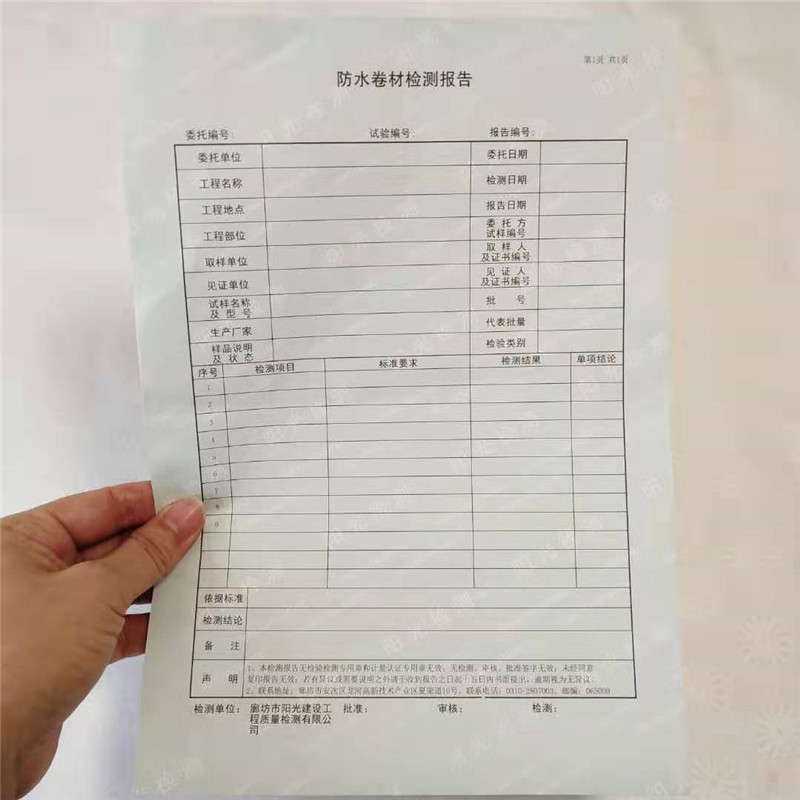 第1页 共1页
防水卷材检测报告
委托编号: 试验编号: 报告编号:
委托单位 委托日期
工程名称 检测日期
工程地点 报告日期
工程部位 委 托 方
试样编号
取样单位 取 样 人
及证书编号
见证单位 见 证 人
及证书编号
试样名称
及 型 号
批 号
生产厂家 代表批量
样品说明
及 状 态
检验类别
序号 检测项目 标准要求 检测结果 单项结论
1
2
3
4
5
6
7
8
9
依据标准
检测结论
备 注
声 明
1、本检测报告无检验检测专用章和计量认证专用章无效；无检测、审核、批准签字无效；未经同意
复印报告无效；若有异议或需要说明之外请于收到报告之日起十五日内书面提出，逾期视为无异议。
2、联系地址：廊坊市安次区龙河高新技术产业区夏荣道10号，联系电话：0310-2807003，邮编：065000
检测单位： 廊坊市阳光建设工 批准： 审核： 检测：
程质量检测有限公
司
阳光检测